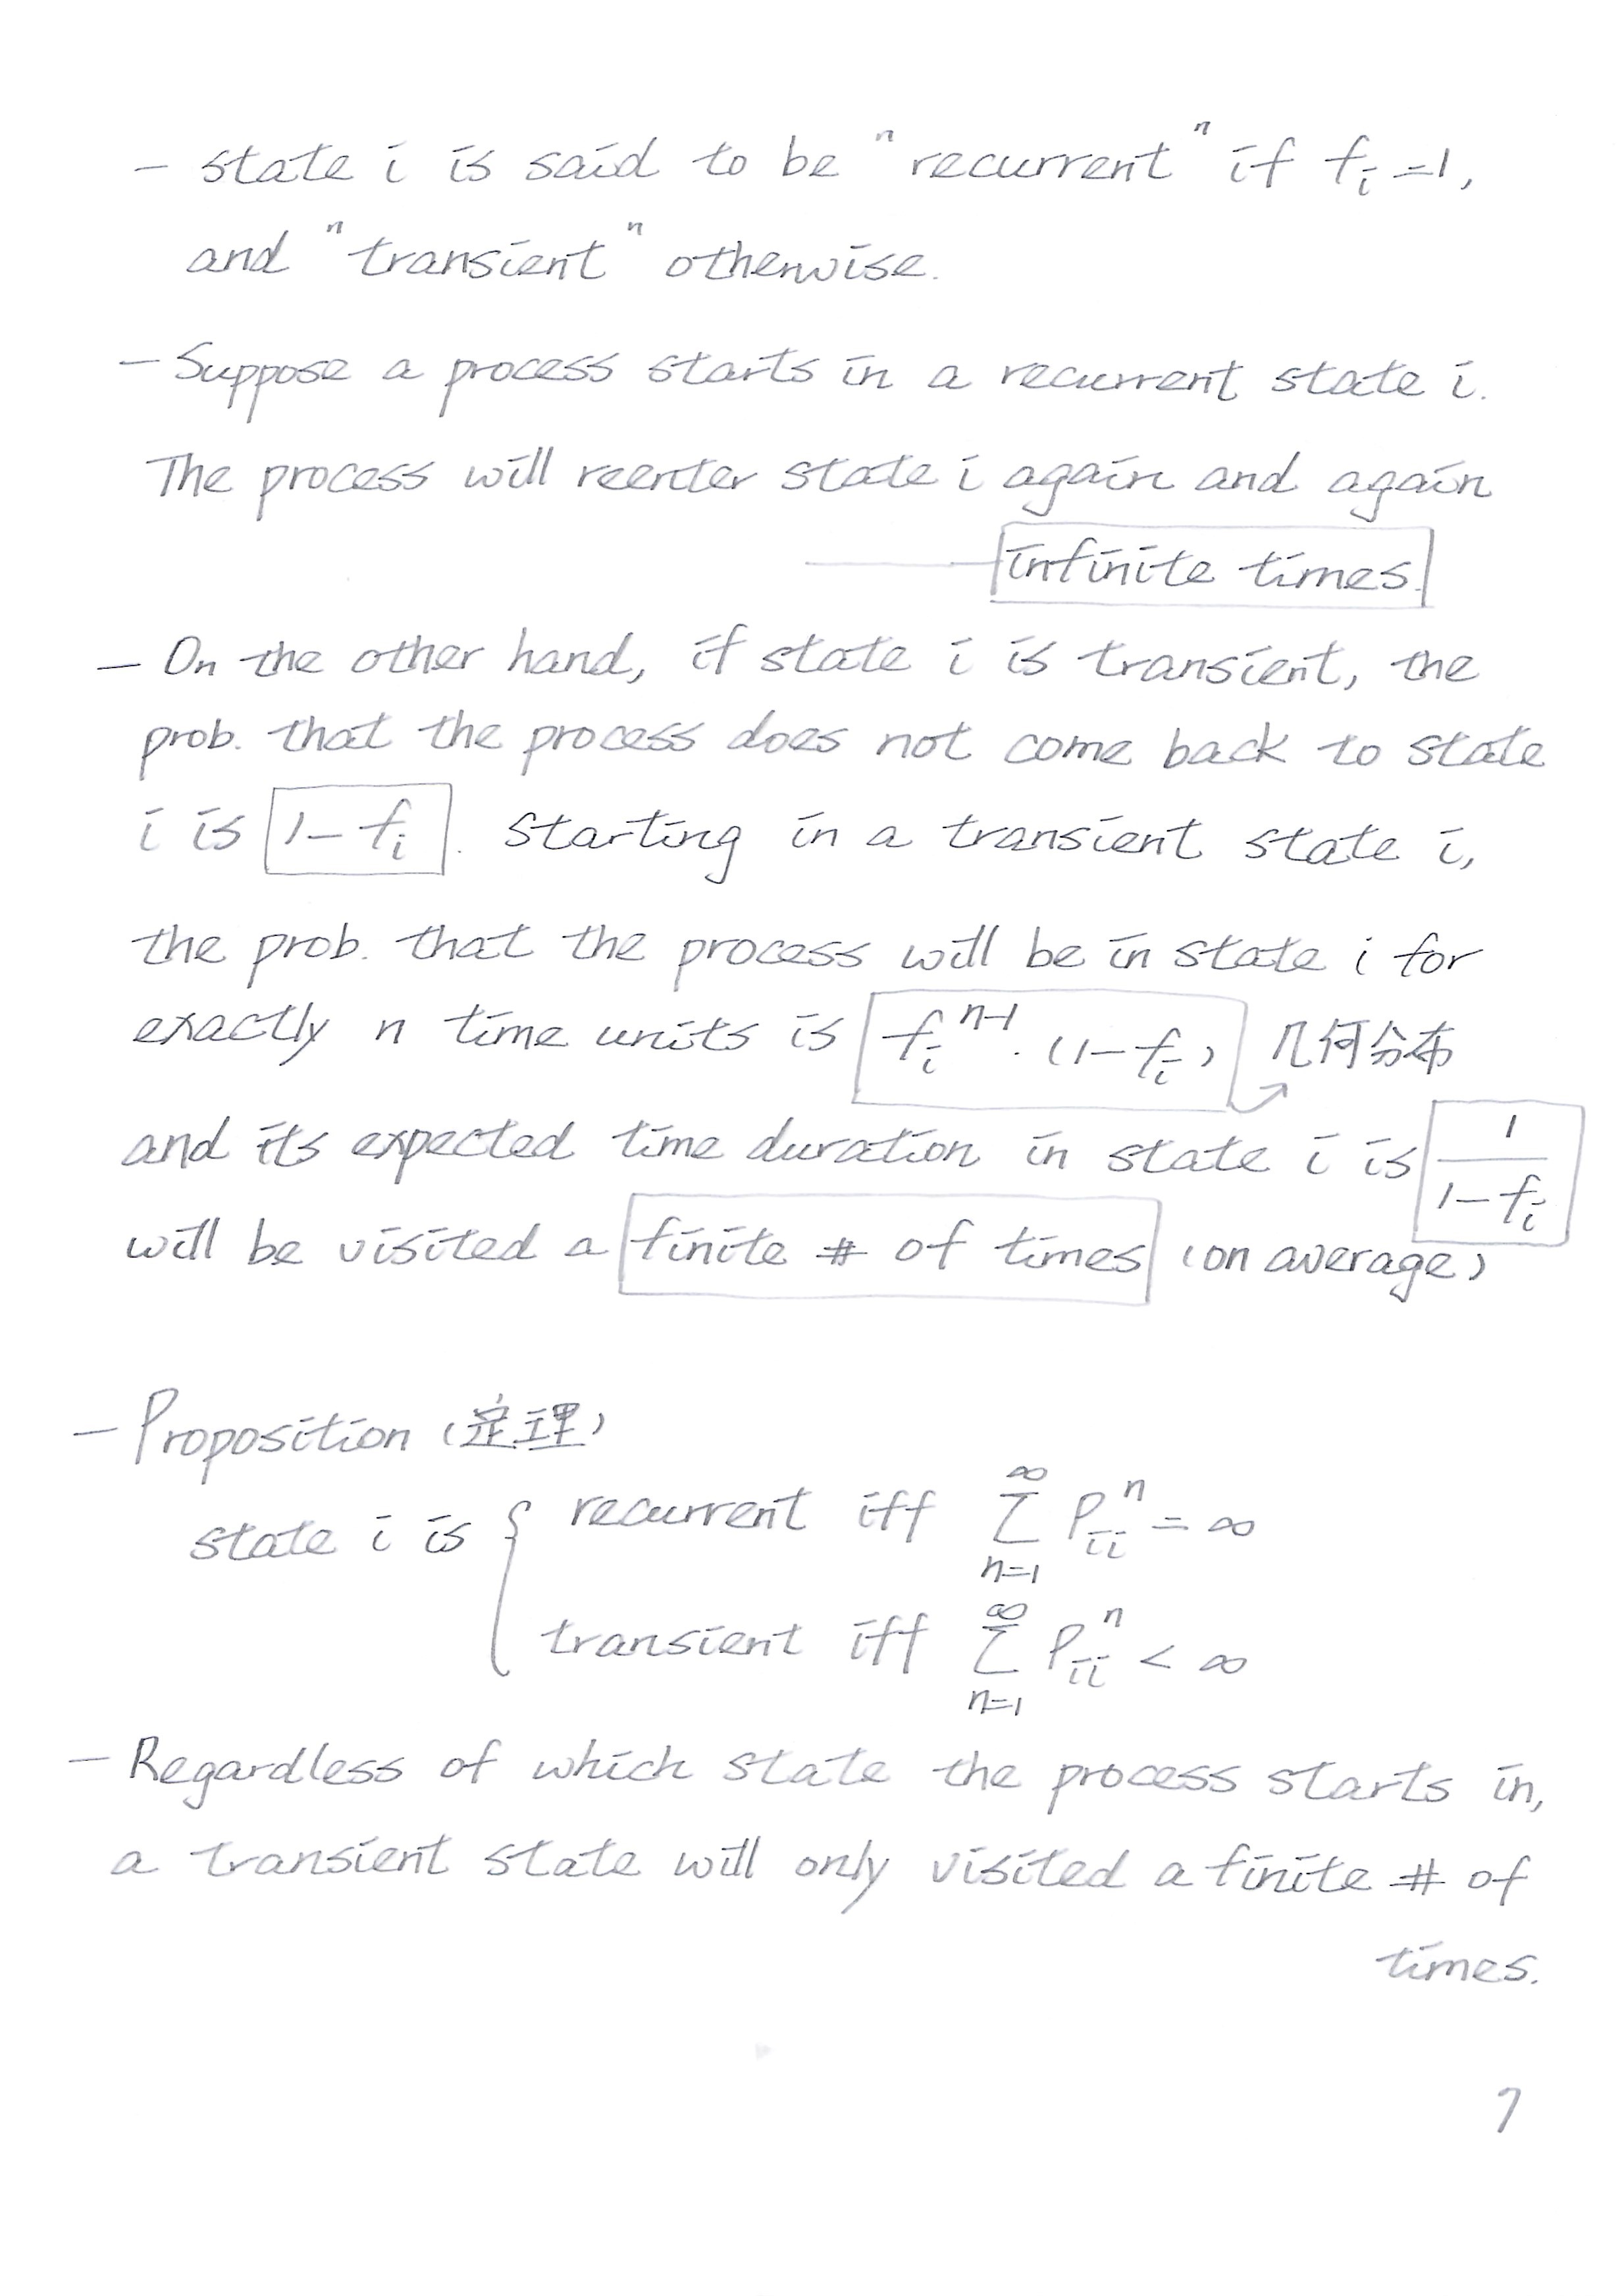 — state i is said to be "recurrent" if fᵢ=1,
and "transient" otherwise.
— Suppose a process starts in a recurrent state i.
The process will reenter state i again and again
infinite times.
— On the other hand, if state i is transient, the
prob. that the process does not come back to state
i is 1-fᵢ. Starting in a transient state i,
the prob. that the process will be in state i for
exactly n time units is fᵢⁿ⁻¹·(1-fᵢ) 几何分布
and its expected time duration in state i is 1/(1-fᵢ)
will be visited a finite # of times (on average)
— Proposition (定理)
state i is { recurrent iff ∑_{n=1}^{∞} P_{ii}^{n} = ∞
transient iff ∑_{n=1}^{∞} P_{ii}^{n} < ∞
— Regardless of which state the process starts in,
a transient state will only visited a finite # of
times.
7